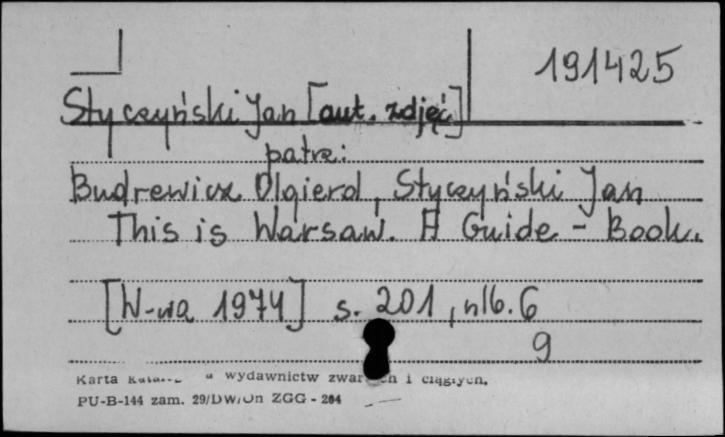 191425
Styczyński Jan [aut. zdjęć]
patrz:
Budrewicz Olgierd, Styczyński Jan
This is Warsaw. A Guide - Book.
[W-wa 1974] s. 201, nlb. 6
9
Karta wydawnictw i ciągłych.
PU-B-144 zam. 29/DW/On ZGG - 264